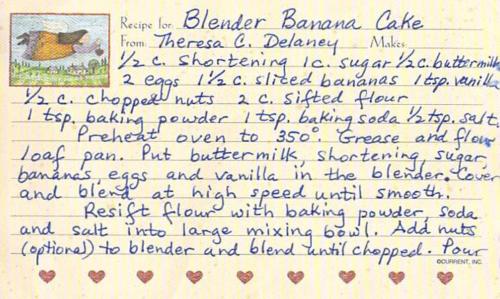 Recipe for Blender Banana Cake
From Theresa C. Delaney Makes
1/2 c. shortening 1 c. sugar 1/2 c. buttermilk
2 eggs 1 1/2 c. sliced bananas 1 tsp. vanilla
1/2 c. chopped nuts 2 c. sifted flour
1 tsp. baking powder 1 tsp. baking soda 1/2 tsp. salt.
Preheat oven to 350°. Grease and flour
loaf pan. Put buttermilk, shortening, sugar,
bananas, eggs and vanilla in the blender. Cover
and blend at high speed until smooth.
Resift flour with baking powder, soda
and salt into large mixing bowl. Add nuts
(optional) to blender and blend until chopped. Pour
©CURRENT, INC.